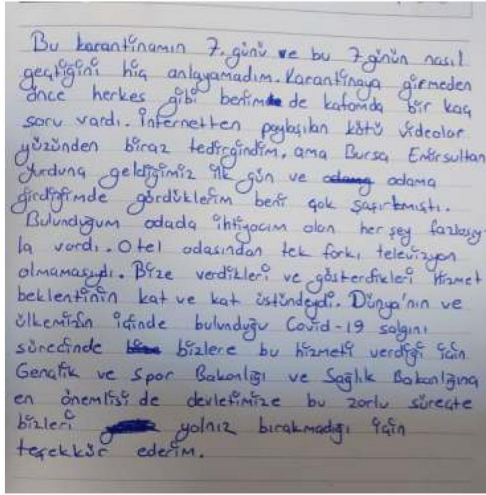 Bu karantinamın 7. günü ve bu 7 günün nasıl
geçtiğini hiç anlayamadım. Karantinaya girmeden
önce herkes gibi benimde de kafamda bir kaç
soru vardı. İnternetten paylaşılan kötü videolar
yüzünden biraz tedirgindim, ama Bursa Emirsultan
yurduna geldiğimiz ilk gün ve odama
girdiğimde gördüklerim beni çok şaşırtmıştı.
Bulunduğum odada ihtiyacım olan her şey fazlasıy
la vardı. Otel odasından tek farkı televizyon
olmamasıydı. Bize verdikleri ve gösterdikleri hizmet
beklentinin kat ve kat üstündeydi. Dünya'nın ve
ülkemizin içinde bulunduğu Covid-19 salgını
sürecinde bizlere bu hizmeti verdiği için
Gençlik ve Spor Bakanlığı ve Sağlık Bakanlığına
en önemlisi de devletimize bu zorlu süreçte
bizleri yalnız bırakmadığı için
teşekkür ederim.